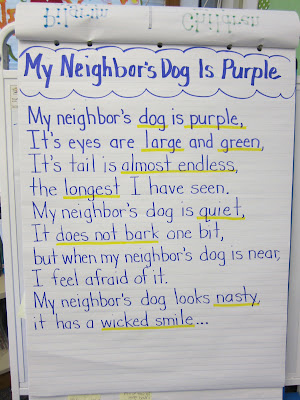 Children
My Neighbor's Dog Is Purple
My neighbor's dog is purple,
It's eyes are large and green,
It's tail is almost endless,
the longest I have seen.
My neighbor's dog is quiet,
It does not bark one bit,
but when my neighbor's dog is near,
I feel afraid of it.
My neighbor's dog looks nasty,
it has a wicked smile...